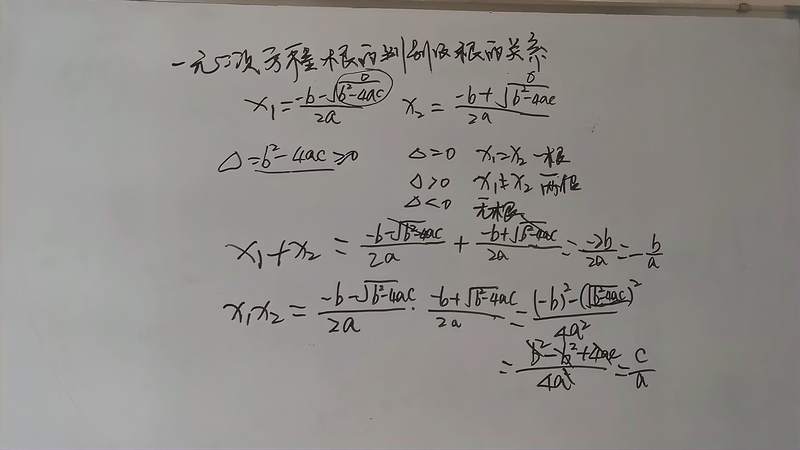 一元二次方程根的判别及根的关系
0 0
x₁ = (-b-√(b²-4ac))/2a x₂ = (-b+√(b²-4ac))/2a
Δ=b²-4ac≥0 Δ=0 x₁=x₂ 一根
Δ>0 x₁≠x₂ 两根
Δ<0 无根
x₁+x₂ = (-b-√(b²-4ac))/2a + (-b+√(b²-4ac))/2a = -2b/2a = -b/a
x₁x₂ = (-b-√(b²-4ac))/2a · (-b+√(b²-4ac))/2a = ((-b)²-(√(b²-4ac))²)/4a²
= (b²-b²+4ac)/4a² = c/a